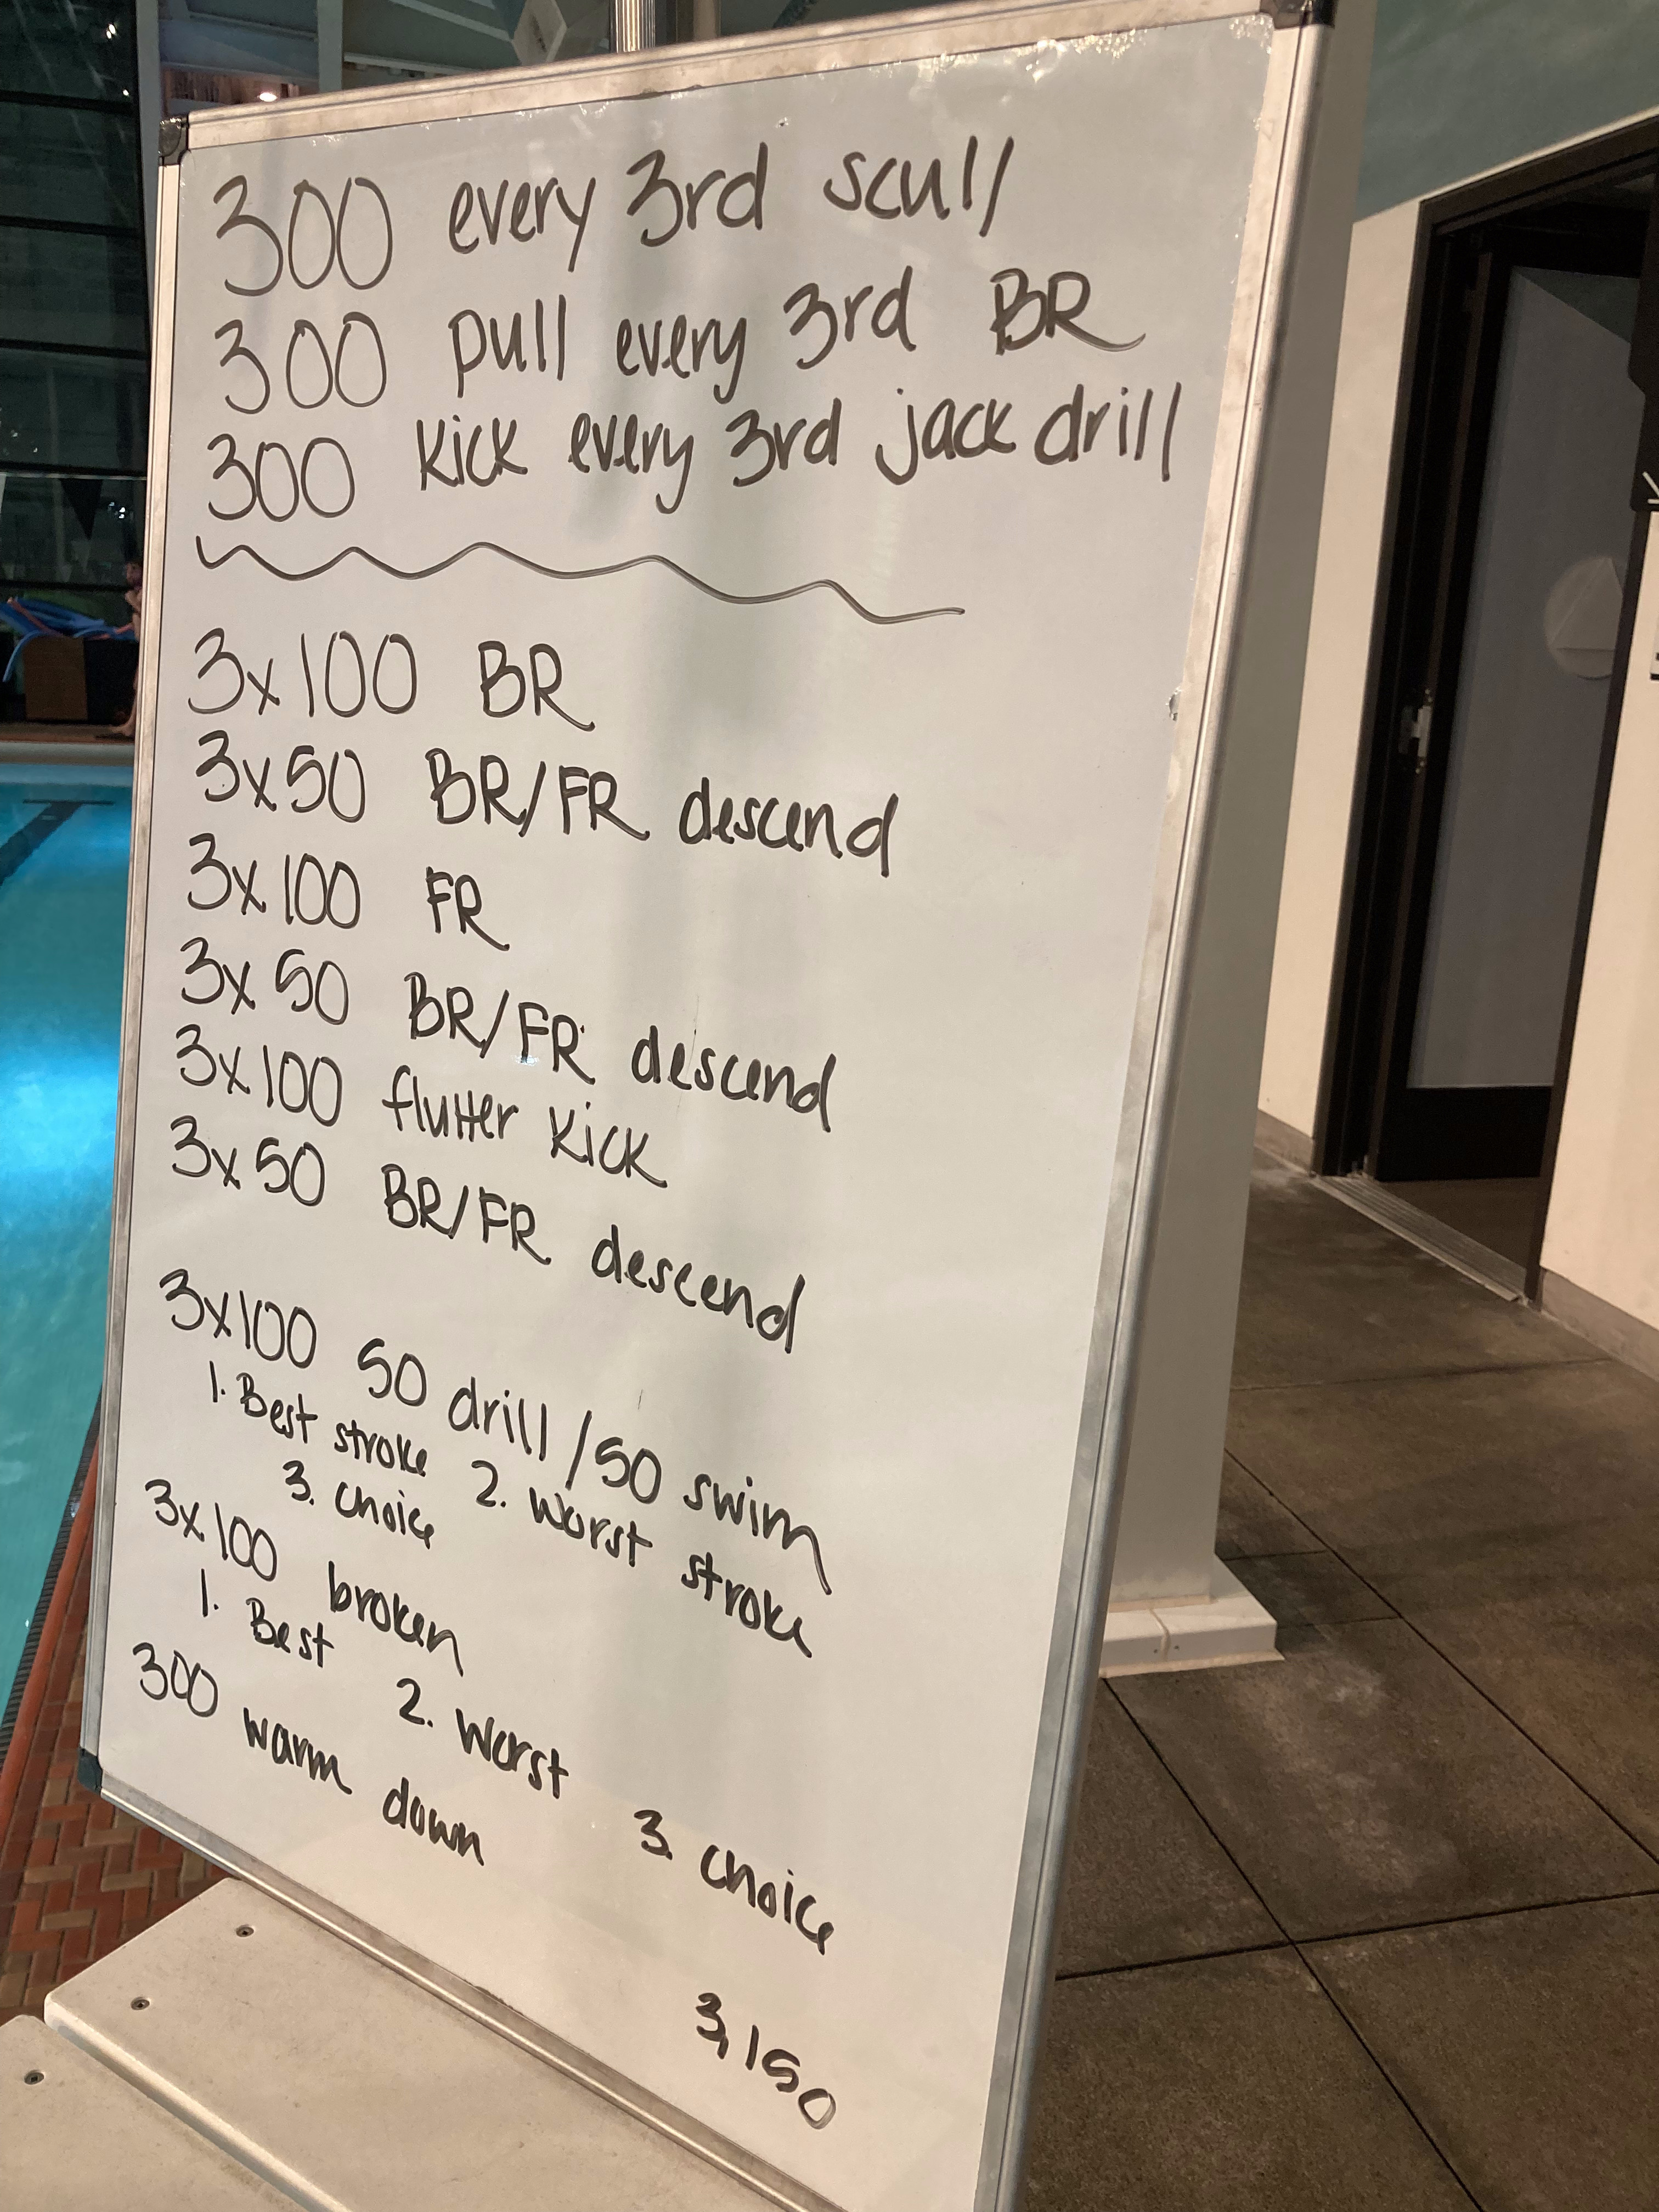 300 every 3rd scull
300 pull every 3rd BR
300 kick every 3rd jack drill
3x100 BR
3x50 BR/FR descend
3x100 FR
3x50 BR/FR descend
3x100 flutter kick
3x50 BR/FR descend
3x100 50 drill/50 swim
1. Best stroke 2. worst stroke
3. choice
3x100 broken
1. Best 2. worst 3. choice
300 warm down
3,150